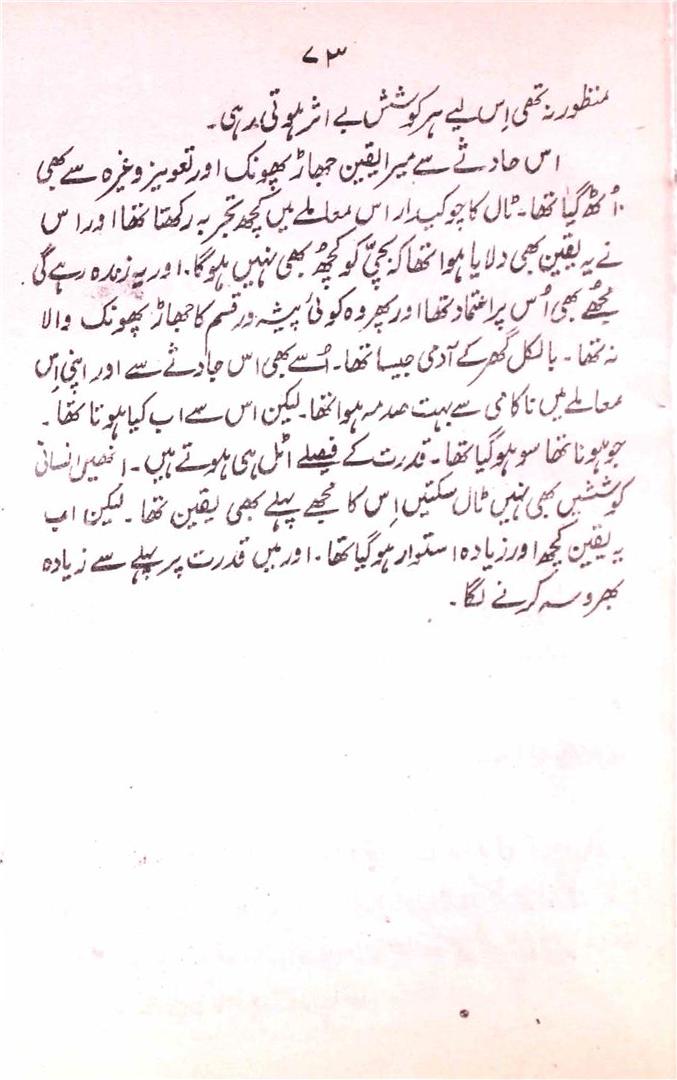 ۷۳
منظور نہ تھی اِس لیے ہر کوشش بے اثر ہوتی رہی۔
اس حادثے سے میرا یقین جھاڑ پھونک اور تعویز وغیرہ سے بھی
اُٹھ گیا تھا۔ ٹال کا چوکیدار اس معاملے میں کچھ تجربہ رکھتا تھا اور اس
نے یہ یقین بھی دلایا ہوا تھا کہ بچیّ کو کچھُ بھی نہیں ہوگا۔ اور یہ زندہ رہے گی
مجُھے بھی اُس پر اعتماد تھا اور پھر وہ کوئی پیشہ ور قسم کا جھاڑ پھونک والا
نہ تھا۔ بالکل گھر کے آدمی جیسا تھا۔ اُسے بھی اس حادثے سے اور اپنی اِس
معاملے میں ناکامی سے بہت صدمہ ہوا تھا۔ لیکن اس سے اب کیا ہوتا تھا۔
جو ہونا تھا سو ہو گیا تھا۔ قدرت کے فیصلے اٹل ہی ہوتے ہیں۔ انھیں انسانی
کوششیں بھی نہیں ٹال سکتیں اِس کا مجھے پہلے بھی یقین تھا۔ لیکن اب
یہ یقین کچھ اور زیادہ استوار ہو گیا تھا۔ اور میں قدرت پر پہلے سے زیادہ
بھروسہ کرنے لگا۔